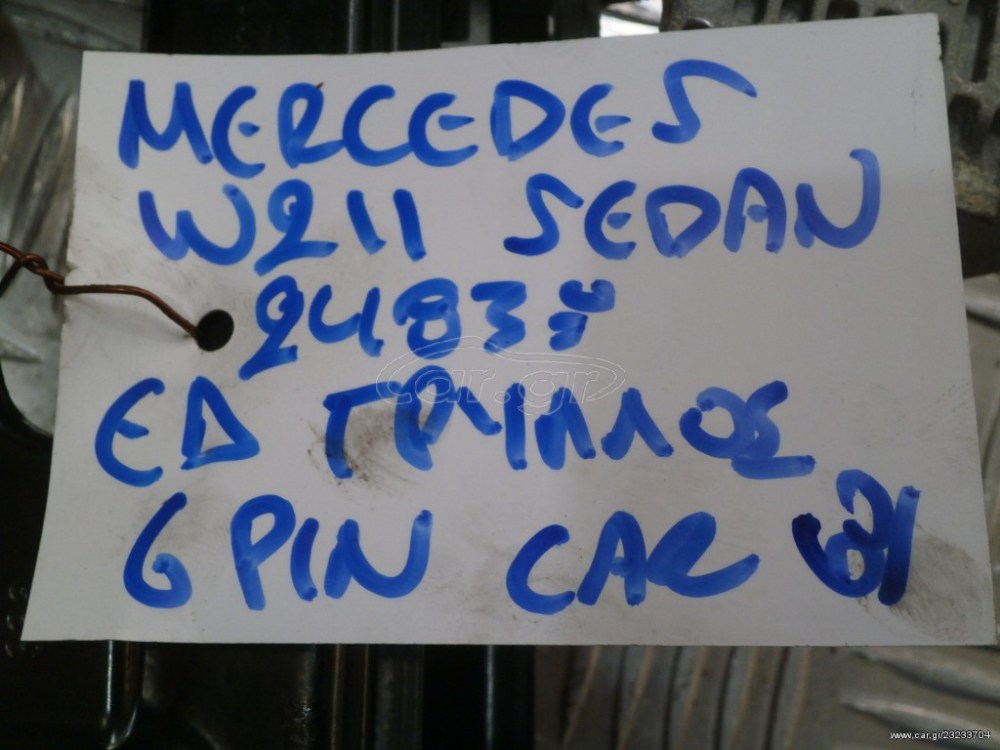 MERCEDES
W211 SEDAN
2483
ΕΔ ΓΡΥΛΛΟΣ
6 PIN CAR
car.gr
www.car.gr/23233704